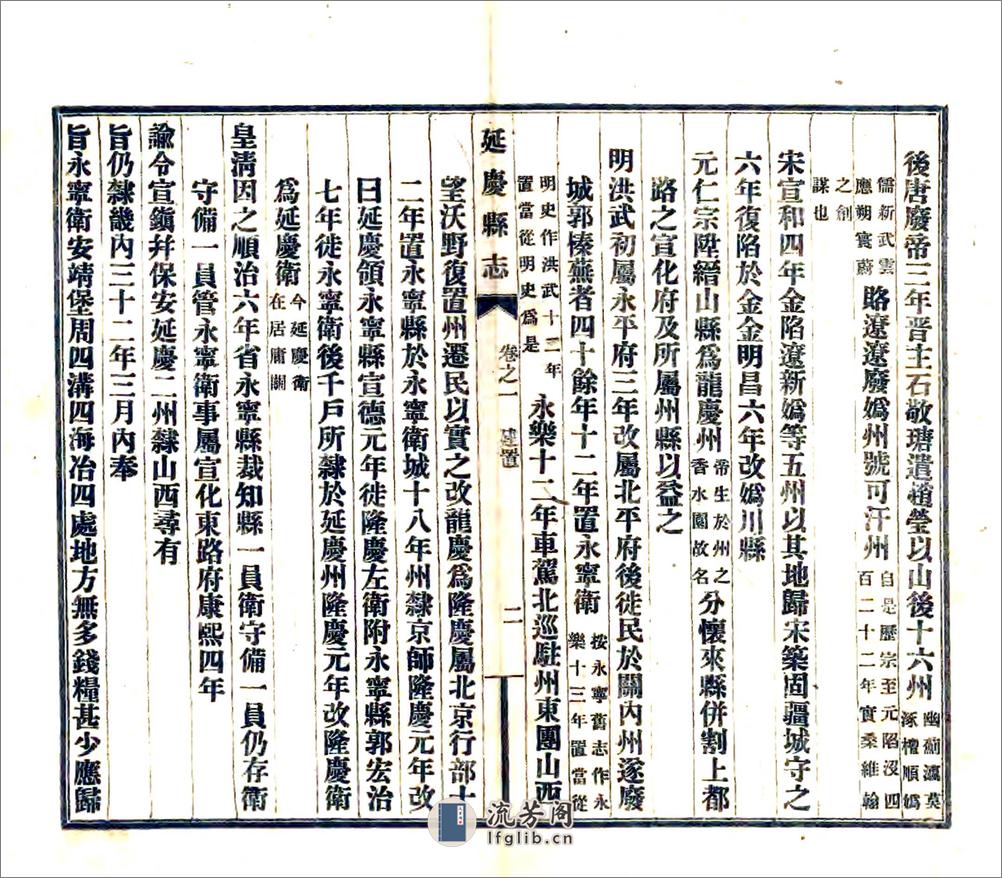 後唐廢帝三年晋主石敬瑭遣趙瑩以山後十六州幽薊瀛莫涿檀順嬀
儒新武雲應朔寰蔚賂遼遼廢嬀州號可汗州自是歷宗至元陷沒四百二十二年實桑維翰
之創謀也
宋宣和四年金陷遼新嬀等五州以其地歸宋築固疆城守之
六年復陷於金金明昌六年改嬀川縣
元仁宗陞縉山縣爲龍慶州帝生於州之香水園故名分懷來縣併割上都
路之宣化府及所屬州縣以益之
明洪武初屬永平府三年改屬北平府後徙民於關內州遂廢
城郭榛蕪者四十餘年十二年置永寧衛按永寧舊志作永樂十三年置當從
明史作洪武十二年置當從明史爲是永樂十二年車駕北巡駐州東團山西
延慶縣志
卷之一
建置
二
望沃野復置州遷民以實之改龍慶爲隆慶屬北京行部十
二年置永寧縣於永寧衛城十八年州隸京師隆慶元年改
曰延慶領永寧縣宣德元年徙隆慶左衛附永寧縣郭宏治
七年徙永寧衛後千戶所隸於延慶州隆慶元年改隆慶衛
爲延慶衛今延慶衛在居庸關
皇清因之順治六年省永寧縣裁知縣一員衛守備一員仍存衛
守備一員管永寧衛事屬宣化東路府康熙四年
諭令宣鎭幷保安延慶二州隸山西尋有
旨仍隸畿內三十二年三月內奉
旨永寧衛安靖堡周四溝四海冶四處地方無多錢糧甚少應歸
流芳阁
lfglib.cn